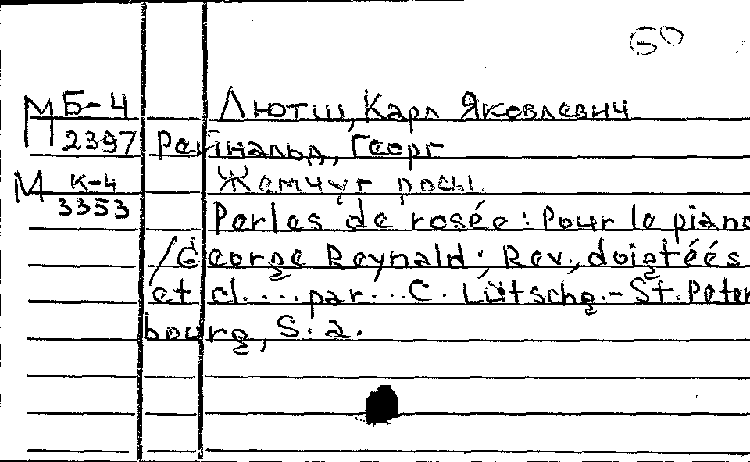 50
М Б-4 Лютш, Карл Яковлевич
2397 Рейнальд, Георг
М К-4 Жемчуг росы.
3353 Perles de rosée: Pour le piano
/George Reynald; Rev., doigtéés
et cl....par...C. Lütschg.-St. Peter
bourg, S.a.